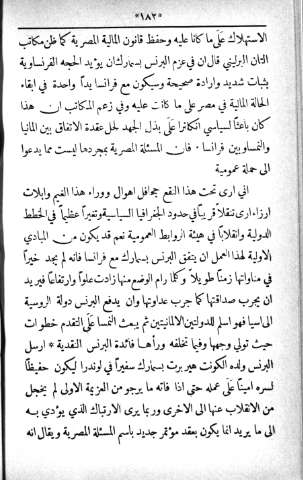 *١٨٢*
الاستهلاك على ما كانا عليه وحفظ قانون المالية المصرية كما ظن مكاتب
التان البرليني قال ان في عزم البرنس بسمارك ان يؤيد الحجة الفرنساوية
بثبات شديد وارادة صحيحة وسيكون مع فرنسا يدًا واحدة في ابقاء
الحالة المالية في مصر على ما كانت عليه وفي زعم المكاتب ان هذا
كان باعثًا لسياسي انكلترا على بذل الجهد لحل عقدة الاتفاق بين المانيا
والنمسا وبين فرانسا * فان المسئلة المصرية بمجردها ليست مما يدعوا
الى حملة عمومية
اني ارى تحت هذا النقع جحافل اهوال ووراء هذا الغيم وابلات
ارزاء ارى تنقلًا قريبًا في حدود الجغرافيا السياسية وتغيرًا عظيمًا في الخطط
الدولية وانقلابًا في هيئة الروابط العمومية نعم قد يكون من المبادي
الاولية لهذا العمل ان يتفق البرنس بسمارك مع فرانسا فانه لم يجد خيرًا
في مناواتها زمنًا طويلًا وكلما رام الوضع منها زادت علوا وارتفاعا فيريد
ان يجرب صداقتها كما جرب عداوتها وان يدفع البرنس دولة الروسية
الى اسيا فهو اسلم للدولتين الالمانيتين ثم يبعث النمسا على التقدم خطوات
حيث تولي وجهها وفيما تخلفه وراها فائدة البرنس النقدية * ارسل
البرنس ولده الكونت هيربرت بسمارك سفيرًا في لوندرا ليكون حفيظًا
لسره امينًا على عمله حتى اذا فاته ما يرجو من العزيمة الاولى لم يخجل
من الانقلاب عنها الى الاخرى وربما يرى الارتباك الذي يؤدي به
الى ما يريد انما يكون بعقد مؤتمر جديد باسم المسئلة المصرية ويقال انه